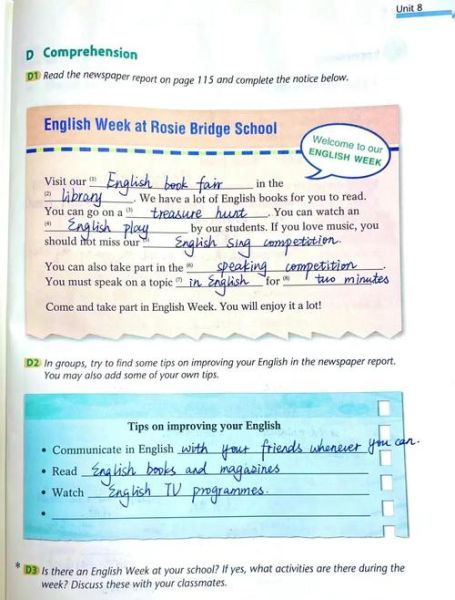 Unit 8
D Comprehension
D1 Read the newspaper report on page 115 and complete the notice below.
English Week at Rosie Bridge School
Welcome to our
ENGLISH WEEK
Visit our (1) English book fair in the
(2) library. We have a lot of English books for you to read.
You can go on a (3) treasure hunt. You can watch an
(4) English play by our students. If you love music, you
should not miss our (5) English Sing competition.
You can also take part in the (6) speaking competition.
You must speak on a topic (7) in English for (8) two minutes
Come and take part in English Week. You will enjoy it a lot!
D2 In groups, try to find some tips on improving your English in the newspaper report.
You may also add some of your own tips.
Tips on improving your English
• Communicate in English with your friends whenever you can.
• Read English books and magazines
• Watch English TV programmes.
•
* D3 Is there an English Week at your school? If yes, what activities are there during the
week? Discuss these with your classmates.